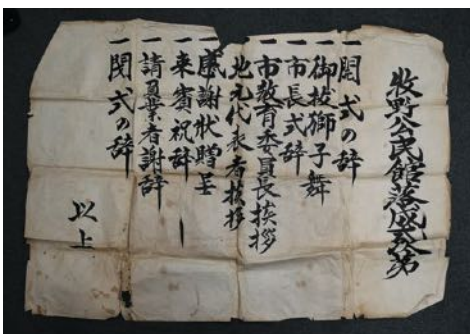 牧野公民館落成式次第
一開式の辞
一御祓獅子舞
一市長式辞
一市教育委員長挨拶
一地元代表者挨拶
一感謝状贈呈
一来賓祝辞
一請負業者謝辞
一閉式の辞
以上